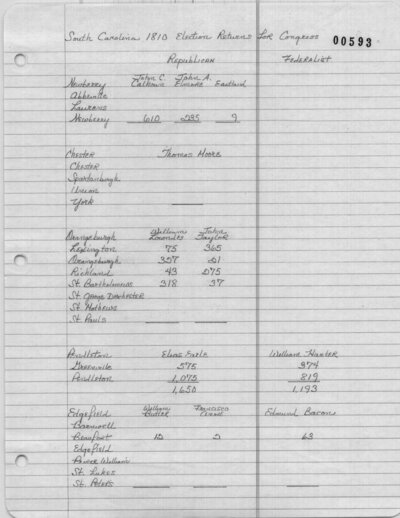 South Carolina 1810 Election Returns for Congress 00593
Republican Federalist
Newberry John C. Calhoun John A. Elmore Eastland
Abbeville
Laurens
Newberry 610 235 9
Chester Thomas Moore
Chester
Spartanburgh
Union
York
Orangeburgh William Lowndes John Taylor
Lexington 75 365
Orangeburgh 357 21
Richland 43 275
St. Bartholomews 318 37
St. George Dorchester
St. Mathews
St. Pauls
Pendleton Elias Earle William Hunter
Greenville 575 374
Pendleton 1,075 819
1,650 1,193
Edgefield William Butler Edmund Bacon
Barnwell
Beaufort 63
Edgefield
Prince William
St. Lukes
St. Peters